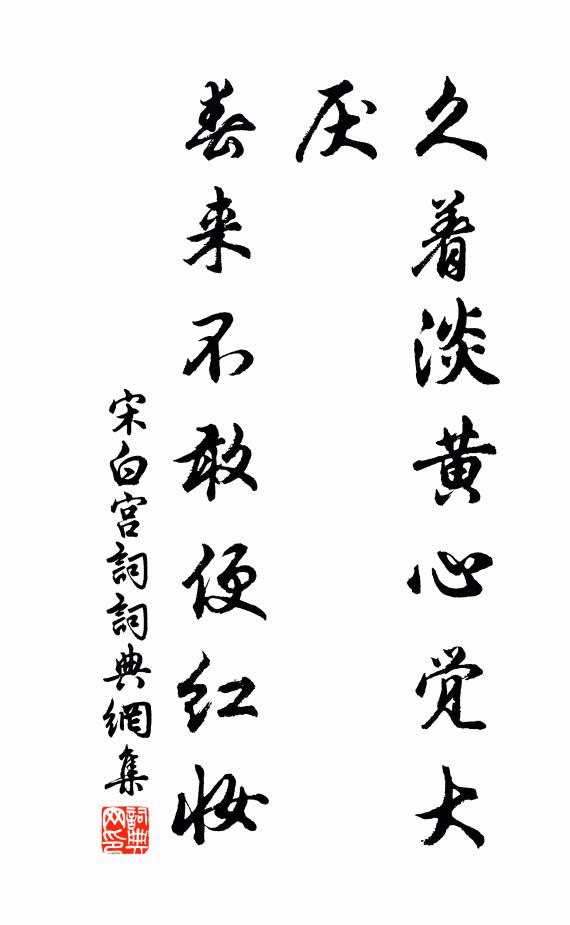 久着淡黄心觉大
厌
春来不敢便红妆
宋白宫詞詞典網集
詞典
网印